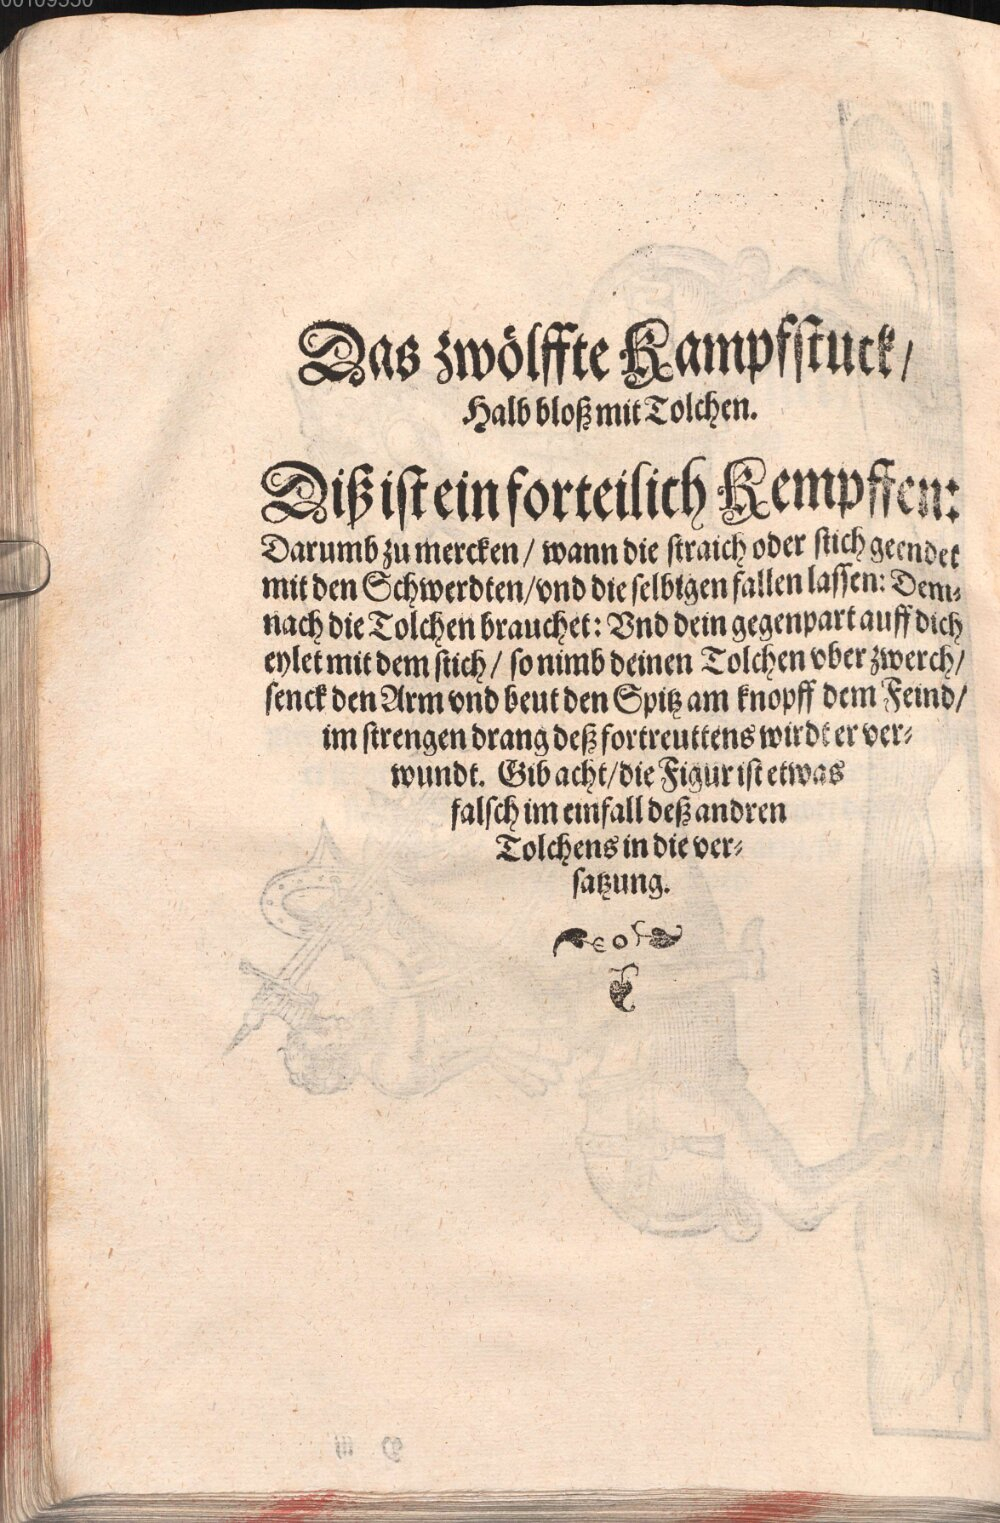 00109330
Das zwölffte Kampfstuck /
Halb bloß mit Tolchen.
Diß ist ein forteilich Kempffen:
Darumb zu mercken / wann die straich oder stich geendet
mit den Schwerdten / vnd die selbigen fallen lassen: Dem⸗
nach die Tolchen brauchet: Vnd dein gegenpart auff dich
eylet mit dem stich / so nimb deinen Tolchen vber zwerch /
senck den Arm vnd beut den Spitz am knopff dem Feind /
im strengen drang deß fortreuttens wirdt er ver⸗
wundt. Gib acht / die Figur ist etwas
falsch im einfall deß andren
Tolchens in die ver⸗
satzung.